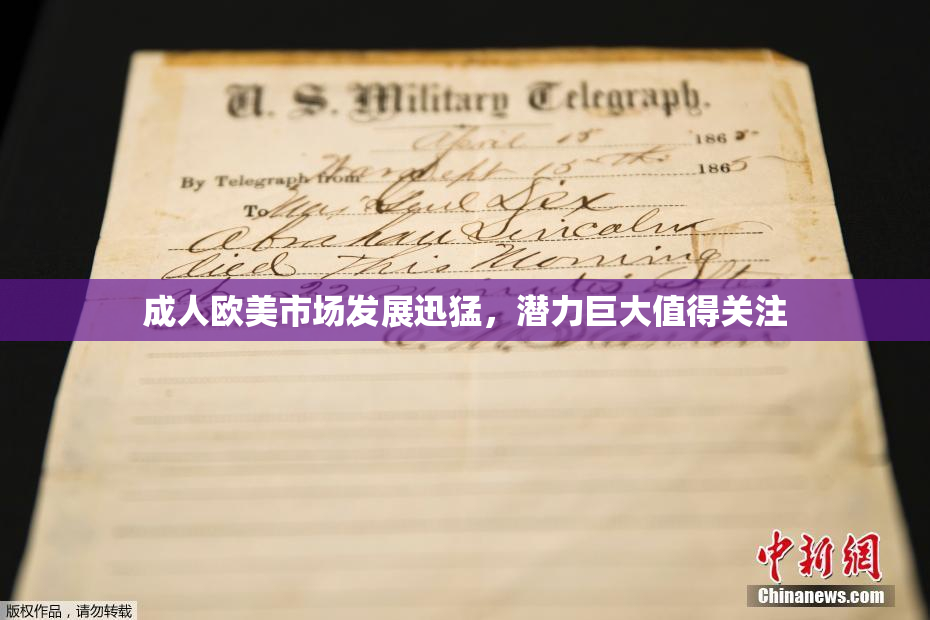 U. S. Military Telegraph.
April 15 1865
By Telegraph from War Dept 15th 1865
To Maj Genl Dix
Abraham Lincoln
died This Morning
at 22 minutes after
成人欧美市场发展迅猛，潜力巨大值得关注
E. M. Stanton
中新網
Chinanews.com
版权作品，请勿转载